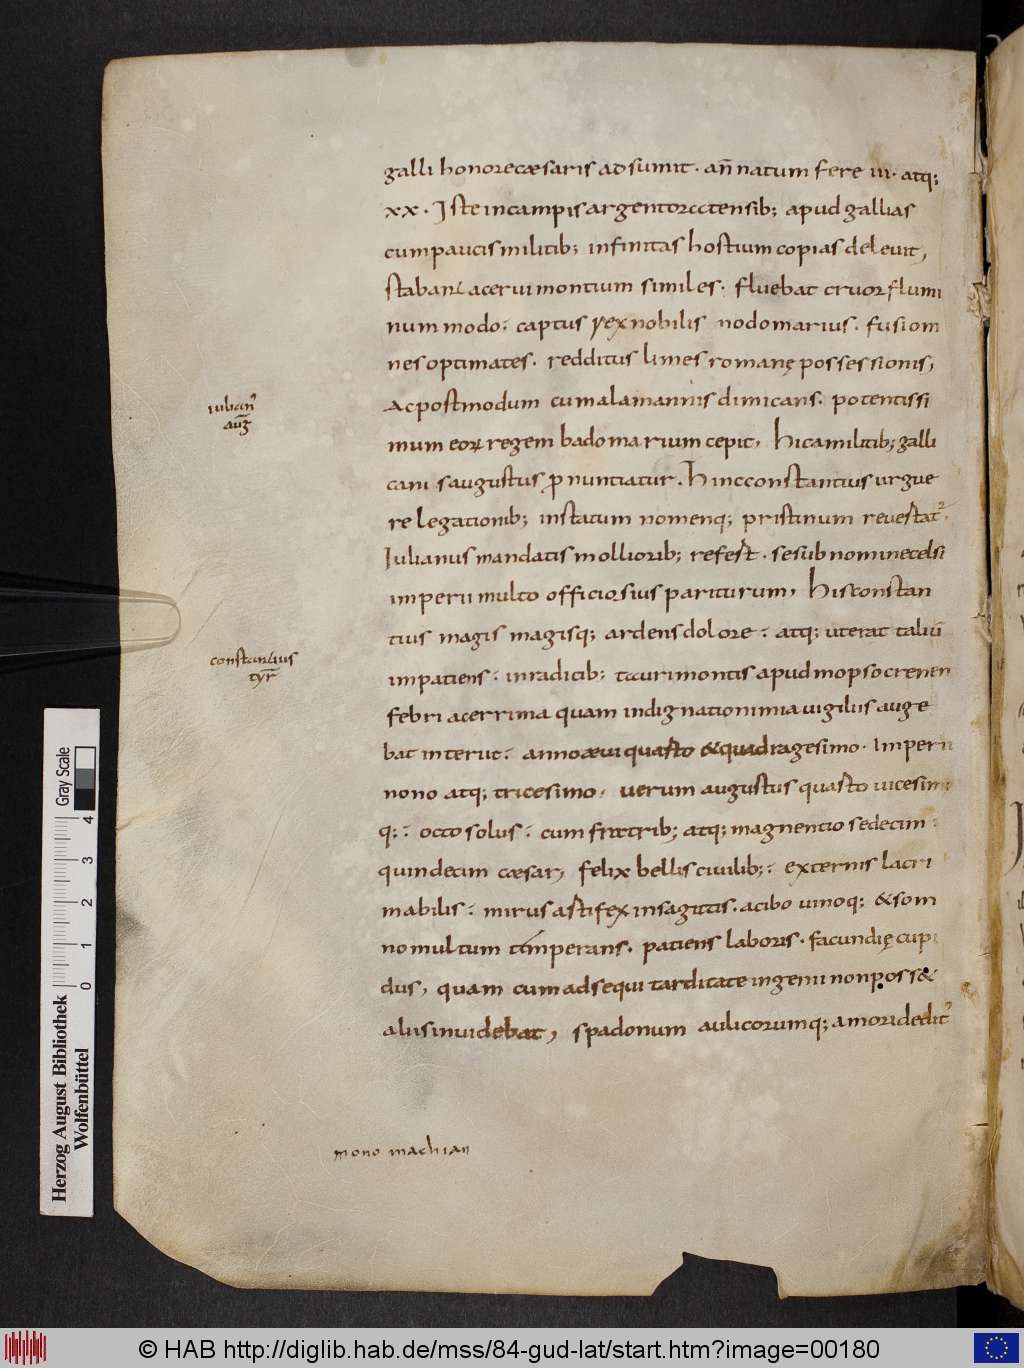 galli honore cæsaris adsumit · an̄ natum fere iii · atq;
xx · Iste in campis argentoratensib; apud gallias
cum paucis militib; infinitas hostium copias delevit,
stabant acervi montium similes · fluebat cruor flumi
num modo : captus rex nobilis nodomarius · fusi om
nes optimates · redditus limes romanę possessionis,
Ac postmodum cum alamannis dimicans · potentissi
mum eoꝝ regem badomarium cepit, hic a militib; galli
canis augustus ꝓnuntiatur · hinc constantius urgue
re legationib; in statum nomenq; pristinum revestat᷑ ·
Iulianus mandatis mollioribus; refest · se sub nomine celsi
imperii multo officiosius pariturum, his constan
tius magis magisq; ardens dolore : atq; ut erat taliū
impatiens : in radicib; tauri montis apud mopsocrenen
febri acerrima quam indignatio nimia vigiliis auge
bat interiit : anno ævi quarto & quadragesimo · Imperii
nono atq; tricesimo, verum augustus quarto vicesim
q; : octo solus : cum fratrib; atq; magnentio sedecim :
quindecim cæsar, felix bellis civilib; : externis lacri
mabilis : mirus artifex in sagittis · a cibo vinoq; & som
no multum temperans · patiens laboris · facundię cupi
dus, quam cum adsequi tarditate ingenii non poss&
aliis invidebat, spadonum aulicorumq; amori dedit᷒
iulian᷒
aug̅
constantius
tyr̅
mono machian
Gray Scale
0 1 2 3 4
Herzog August Bibliothek
Wolfenbüttel
© HAB http://diglib.hab.de/mss/84-gud-lat/start.htm?image=00180